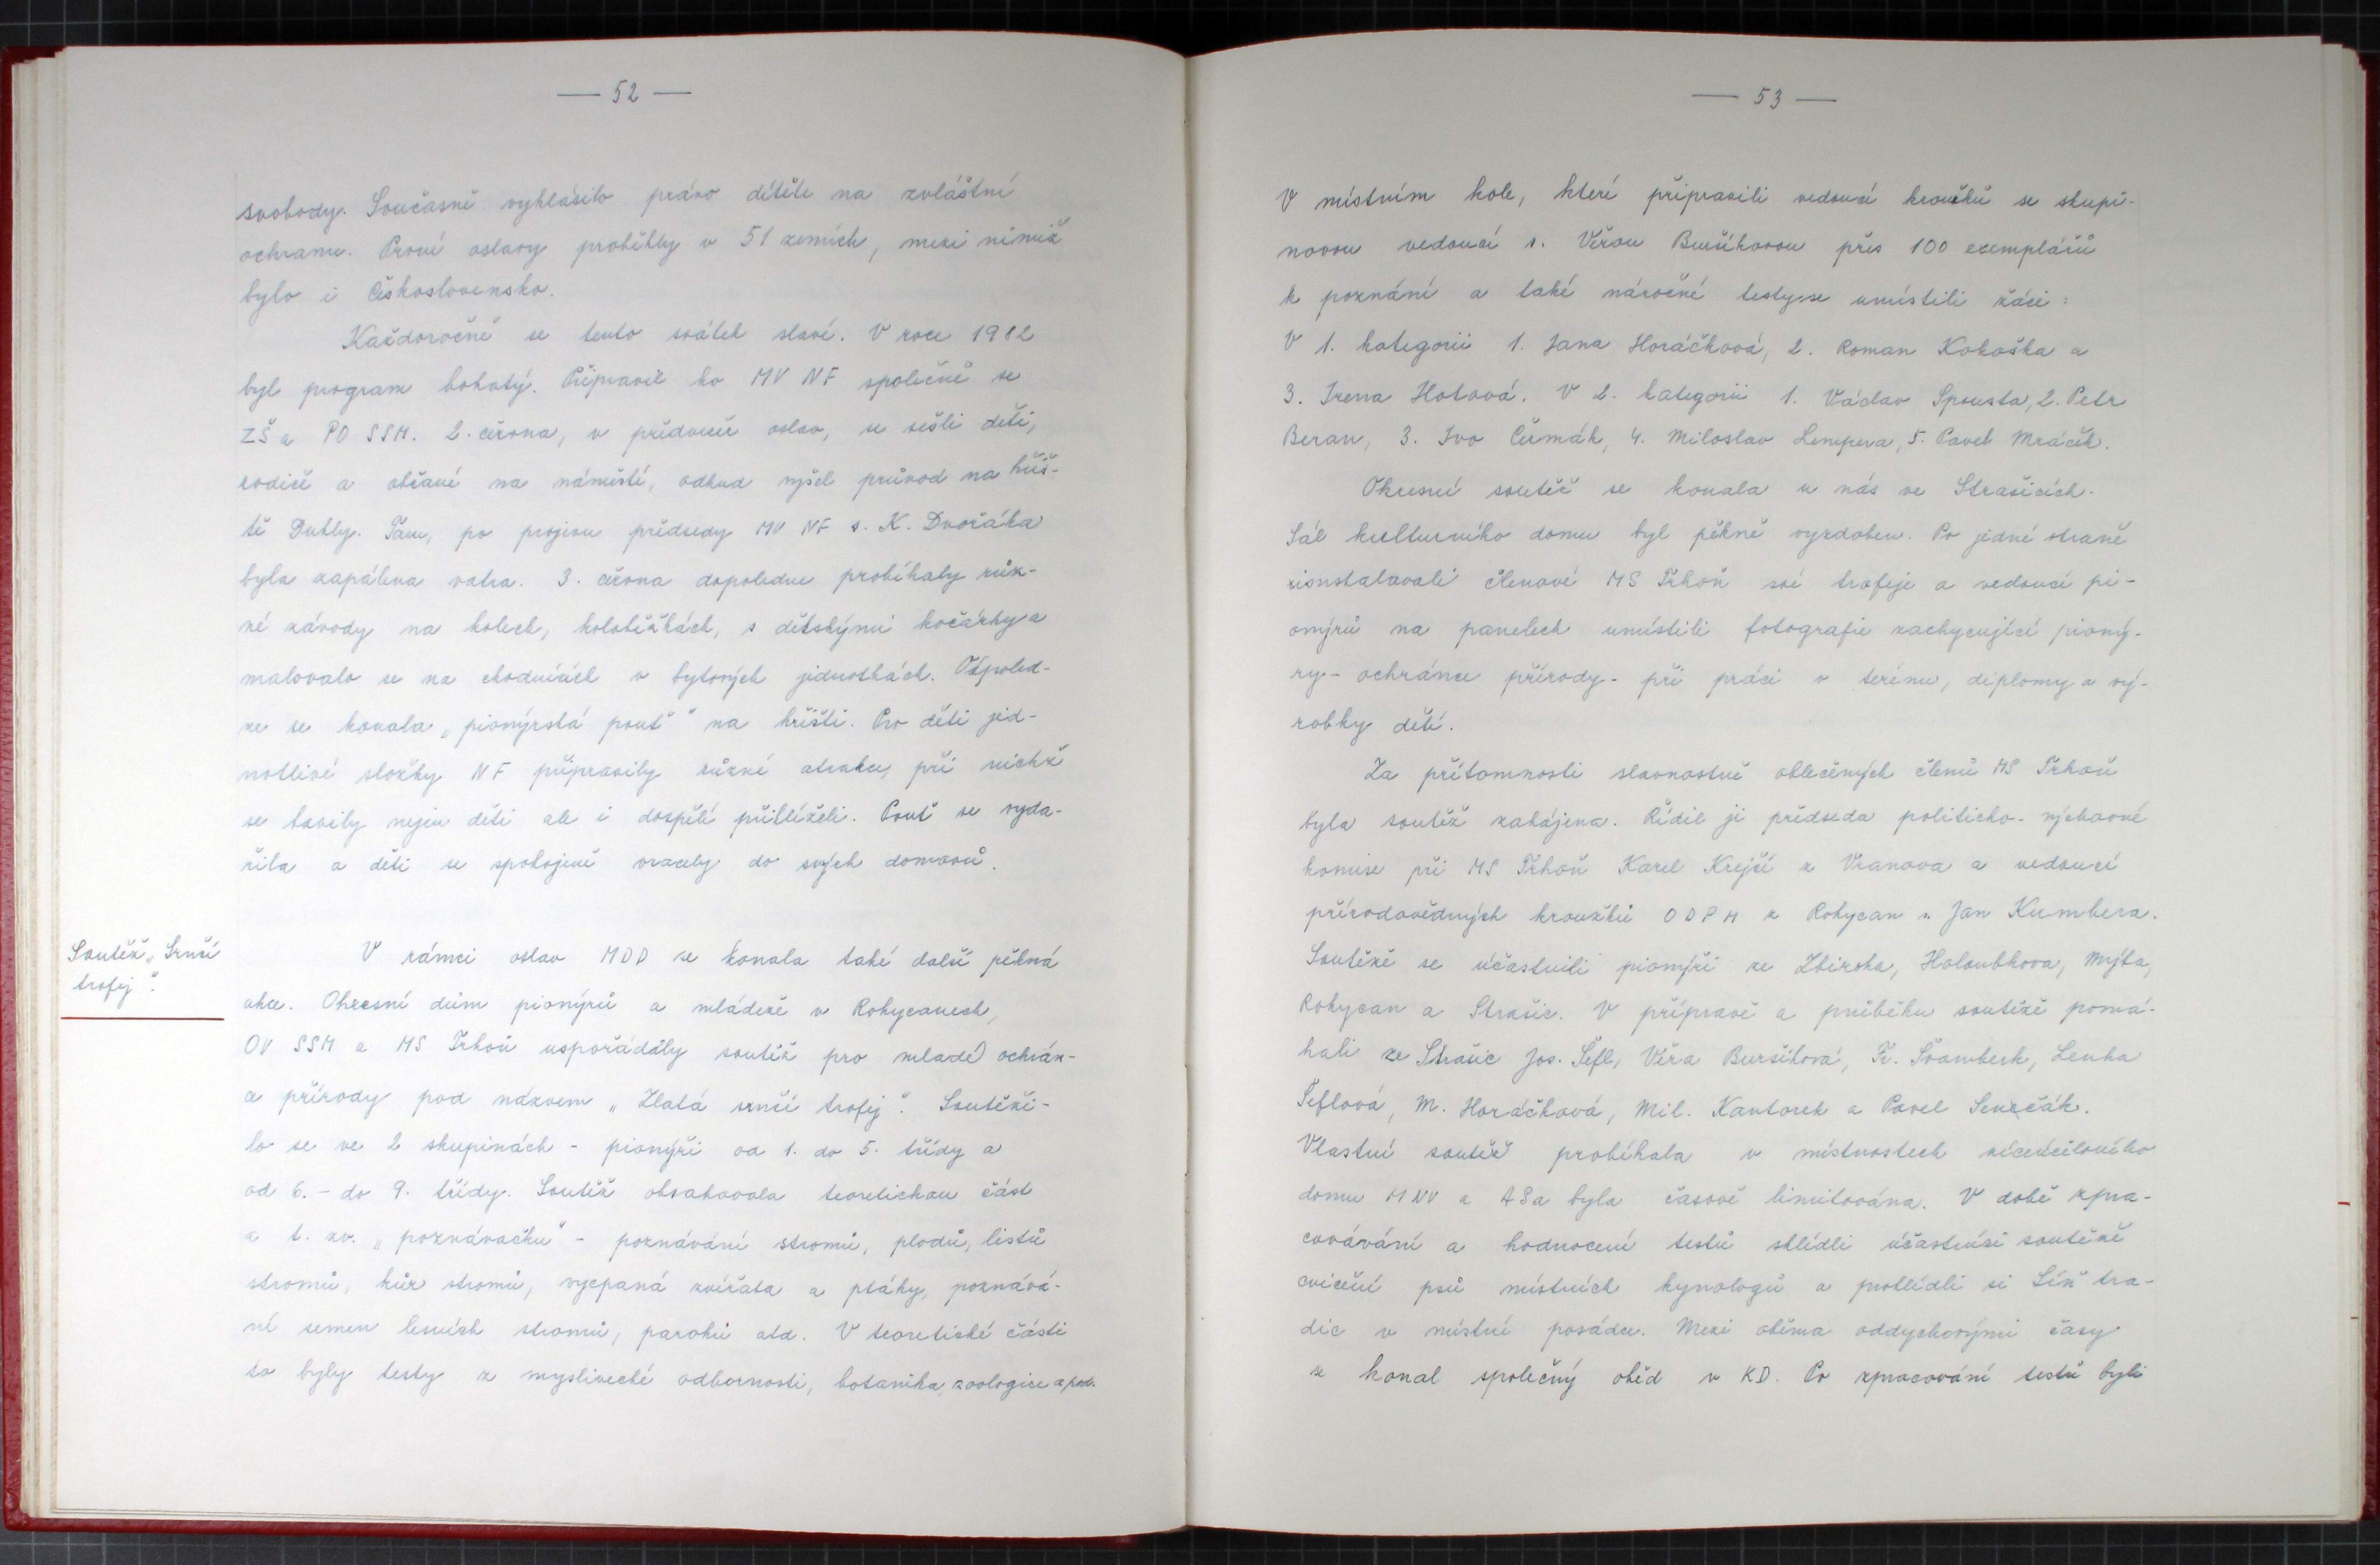 — 52 —
svobody. Současně vyhlásilo právo dítěte na zvláštní
ochranu. První oslavy proběhly v 51 zemích, mezi nimiž
bylo i Československo.
Každoročně se tento svátek slaví. V roce 1982
byl program bohatý. Připravil ho MV NF společně se
ZŠ a PO SSM. 2. června, v předvečer oslav, se sešli děti,
rodiče a občané na náměstí, odkud vyšel průvod na hřiš-
tě Dukly. Tam, po projevu předsedy MV NF s. K. Dvořáka
byla zapálena vatra. 3. června dopoledne probíhaly růz-
né závody na kolech, koloběžkách, s dětskými kočárky a
malovalo se na chodnících v bytových jednotkách. Odpoled-
ne se konala „pionýrská pouť“ na hřišti. Pro děti jed-
notlivé složky NF připravily různé atrakce, při nichž
se bavily nejen děti ale i dospělí přihlíželi. Pouť se vyda-
řila a děti se spokojeně vracely do svých domovů.
Soutěž „Srnčí
trofej“.
V rámci oslav MDD se konala také další pěkná
akce. Okresní dům pionýrů a mládeže v Rokycanech,
OV SSM a MS Trhoň uspořádaly soutěž pro mladé ochrán-
ce přírody pod názvem „Zlatá srnčí trofej“. Soutěži-
lo se ve 2 skupinách - pionýři od 1. do 5. třídy a
od 6. - do 9. třídy. Soutěž obsahovala teoretickou část
a t. zv. „poznávačku“ - poznávání stromů, plodů, listů
stromů, kůr stromů, vycpaná zvířata a ptáky, poznává-
ní semen lesních stromů, parohů atd. V teoretické části
to byly testy z myslivecké odbornosti, botanika, zoologice a pod.
— 53 —
V místním kole, které připravili vedoucí kroužků se skupi-
novou vedoucí s. Věrou Buršíkovou přes 100 exemplářů
k poznání a také náročné testy se umístili žáci:
V 1. kategorii 1. Jana Horáčková, 2. Roman Kokoška a
3. Irena Hotová. V 2. kategorii 1. Václav Spousta, 2. Petr
Beran, 3. Ivo Čermák, 4. Miloslav Lempera, 5. Pavel Mráček.
Okresní soutěž se konala u nás ve Strašicích.
Sál kulturního domu byl pěkně vyzdoben. Po jedné straně
nainstalovali členové MS Trhoň své trofeje a vedoucí pi-
onýrů na panelech umístili fotografie zachycující pioný-
ry - ochránce přírody - při práci v terénu, diplomy a vý-
robky dětí.
Za přítomnosti slavnostně oblečených členů MS Trhoň
byla soutěž zahájena. Řídil ji předseda politicko-výchovné
komise při MS Trhoň Karel Krejčí z Vranova a vedoucí
přírodovědných kroužků ODPM z Rokycan s. Jan Kumbera.
Soutěže se účastnili pionýři ze Zbiroha, Holoubkova, Mýta,
Rokycan a Strašic. V přípravě a průběhu soutěže pomá-
hali ze Strašic Jos. Šefl, Věra Buršíková, Fr. Švamberk, Lenka
Šeflová, M. Horáčková, Mil. Kantorek a Pavel Senečák.
Vlastní soutěž probíhala v místnostech víceúčelového
domu MNV a ASa byla časově limitována. V době zpra-
covávání a hodnocení testů shlédli účastníci soutěže
cvičení psů místních kynologů a prohlédli si Síň tra-
dic v místní posádce. Mezi oběma oddychovými časy
se konal společný oběd v KD. Po zpracování testů byli